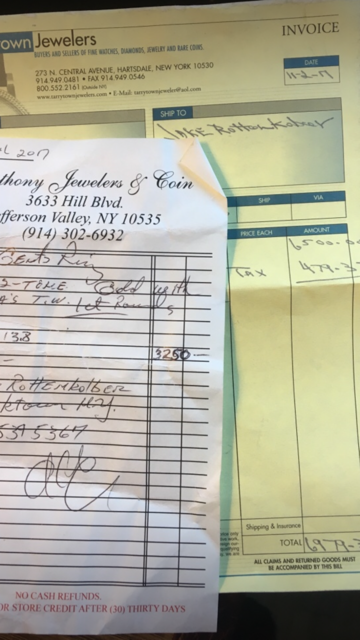 own Jewelers
INVOICE
BUYERS AND SELLERS OF FINE WATCHES, DIAMONDS, JEWELRY AND RARE COINS
273 N. CENTRAL AVENUE, HARTSDALE, NEW YORK 10530
914.949.0481 • FAX 914.949.0546
800.552.2161
www.tarrytownjewelers.com • E-Mail: tarrytownjeweler@aol.com
DATE
11-2-17
SHIP TO
SHIP
VIA
PRICE EACH
AMOUNT
6500.0
Tax
479.3
Shipping & Insurance
TOTAL 6979.3
ALL CLAIMS AND RETURNED GOODS MUST
BE ACCOMPANIED BY THIS BILL
2017
thony Jewelers & Coin
3633 Hill Blvd.
fferson Valley, NY 10535
(914) 302-6932
Gents Ring
2-TONE Gold with
T.W. 1ct Rounds
3250 —
Rottenkolber
NO CASH REFUNDS.
OR STORE CREDIT AFTER (30) THIRTY DAYS